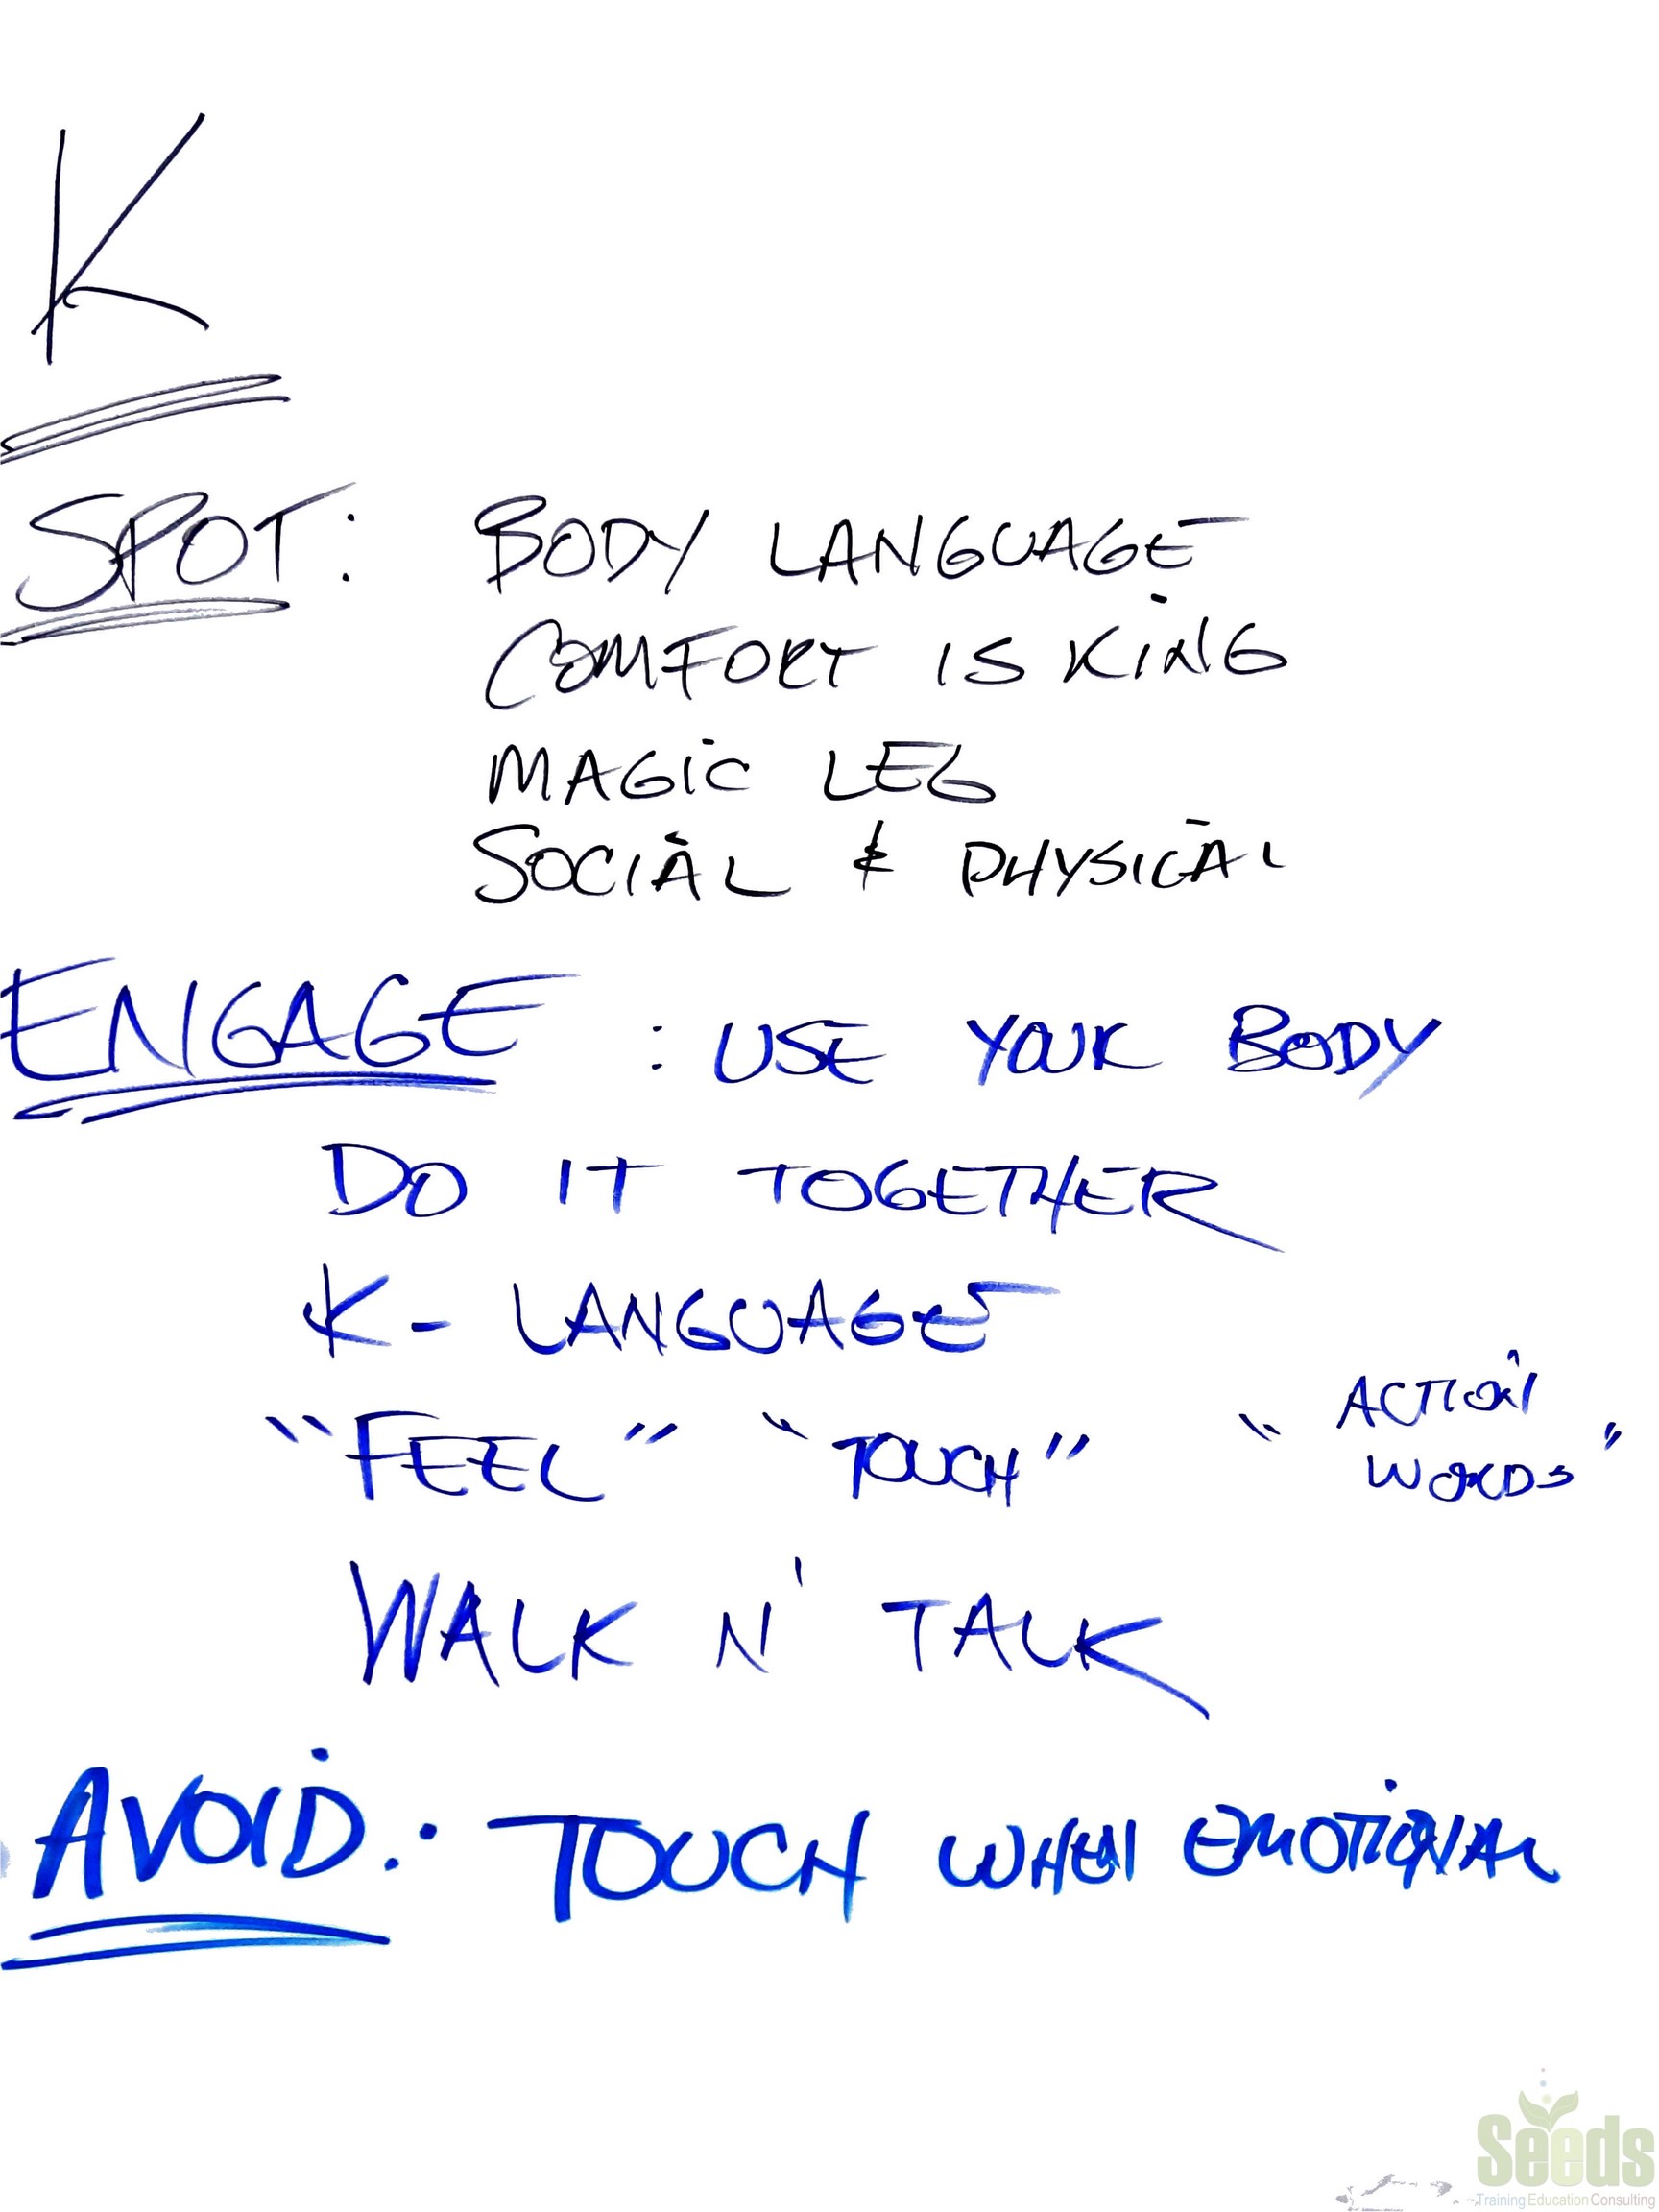 K
SPOT: BODY LANGUAGE
COMFORT IS KING
MAGIC LEG
SOCIAL & PHYSICAL
ENGAGE: USE YOUR BODY
DO IT TOGETHER
K - LANGUAGE
"FEEL" "TOUCH" "ACTION WORDS"
WALK N' TALK
AVOID: TOUCH WHEN EMOTIONAL
Seeds
Training Education Consulting